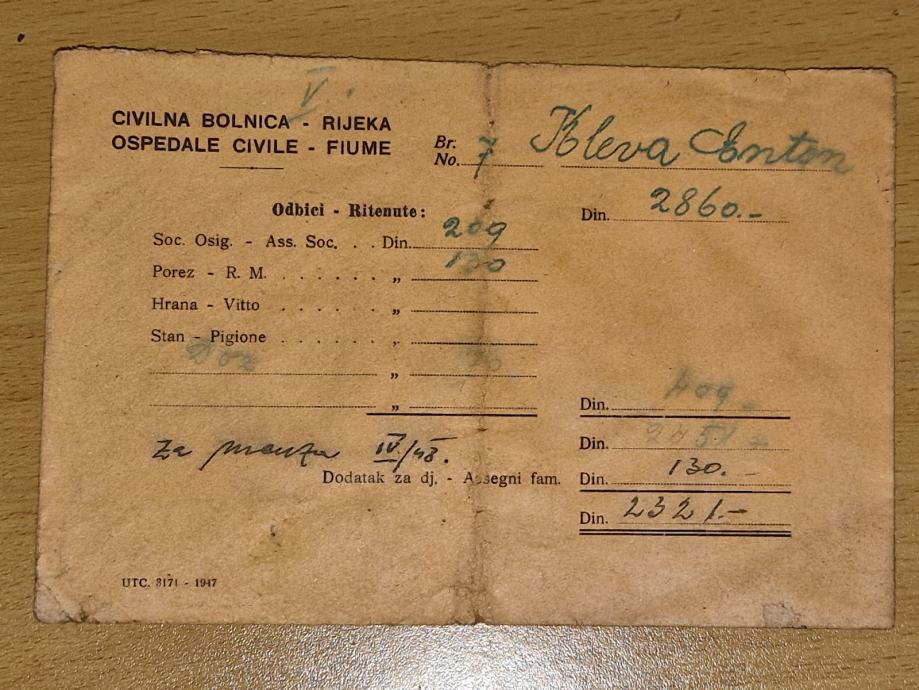 V.
CIVILNA BOLNICA - RIJEKA
OSPEDALE CIVILE - FIUME
Br.
No. 7 Kleva Anton
Din. 2860.-
Odbici - Ritenute:
Soc. Osig. - Ass. Soc. . . Din. 209
Porez - R. M. . . . . . . „ 130
Hrana - Vitto . . . . . . „
Stan - Pigione . . . . . . „
„ 70
„
Din. 409
Din. 2451
Za IV./48.
Dodatak za dj. - Assegni fam. Din. 130.-
Din. 2321.-
UTC. 8171 - 1947